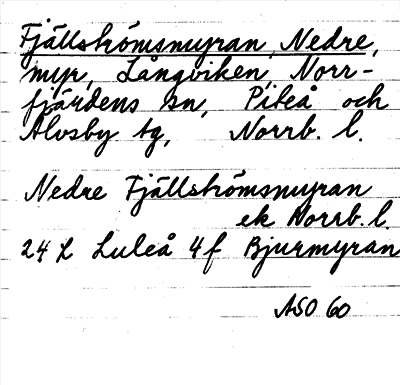 Fjällströmsmyran, Nedre,
myr, Långviken, Norr-
fjärdens sn, Piteå och
Älvsby tg, Norrb. l.
Nedre Fjällströmsmyran
ek Norrb. l.
24 L Luleå 4f Bjurmyran
ASO 60